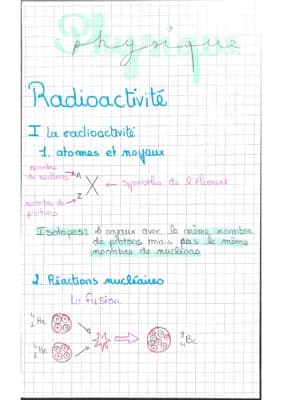 Physique
physique
Radioactivité
I La radioactivité
1. atomes et noyaux
nombre
de nucléons → A
X ← symbole de l'élément
nombre de → Z
protons
Isotopes: noyaux avec le même nombre
de protons mais pas le même
nombre de nucléons
2. Réactions nucléaires
la fusion
4 2 He
4 2 He
8 4 Be